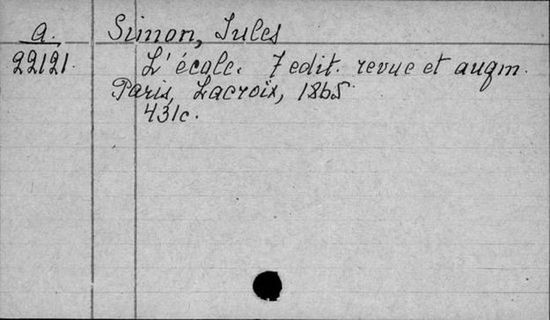 a. Simon, Jules
22121. L'école. 7 edit. revue et augm.
Paris, Lacroix, 1865
431c.